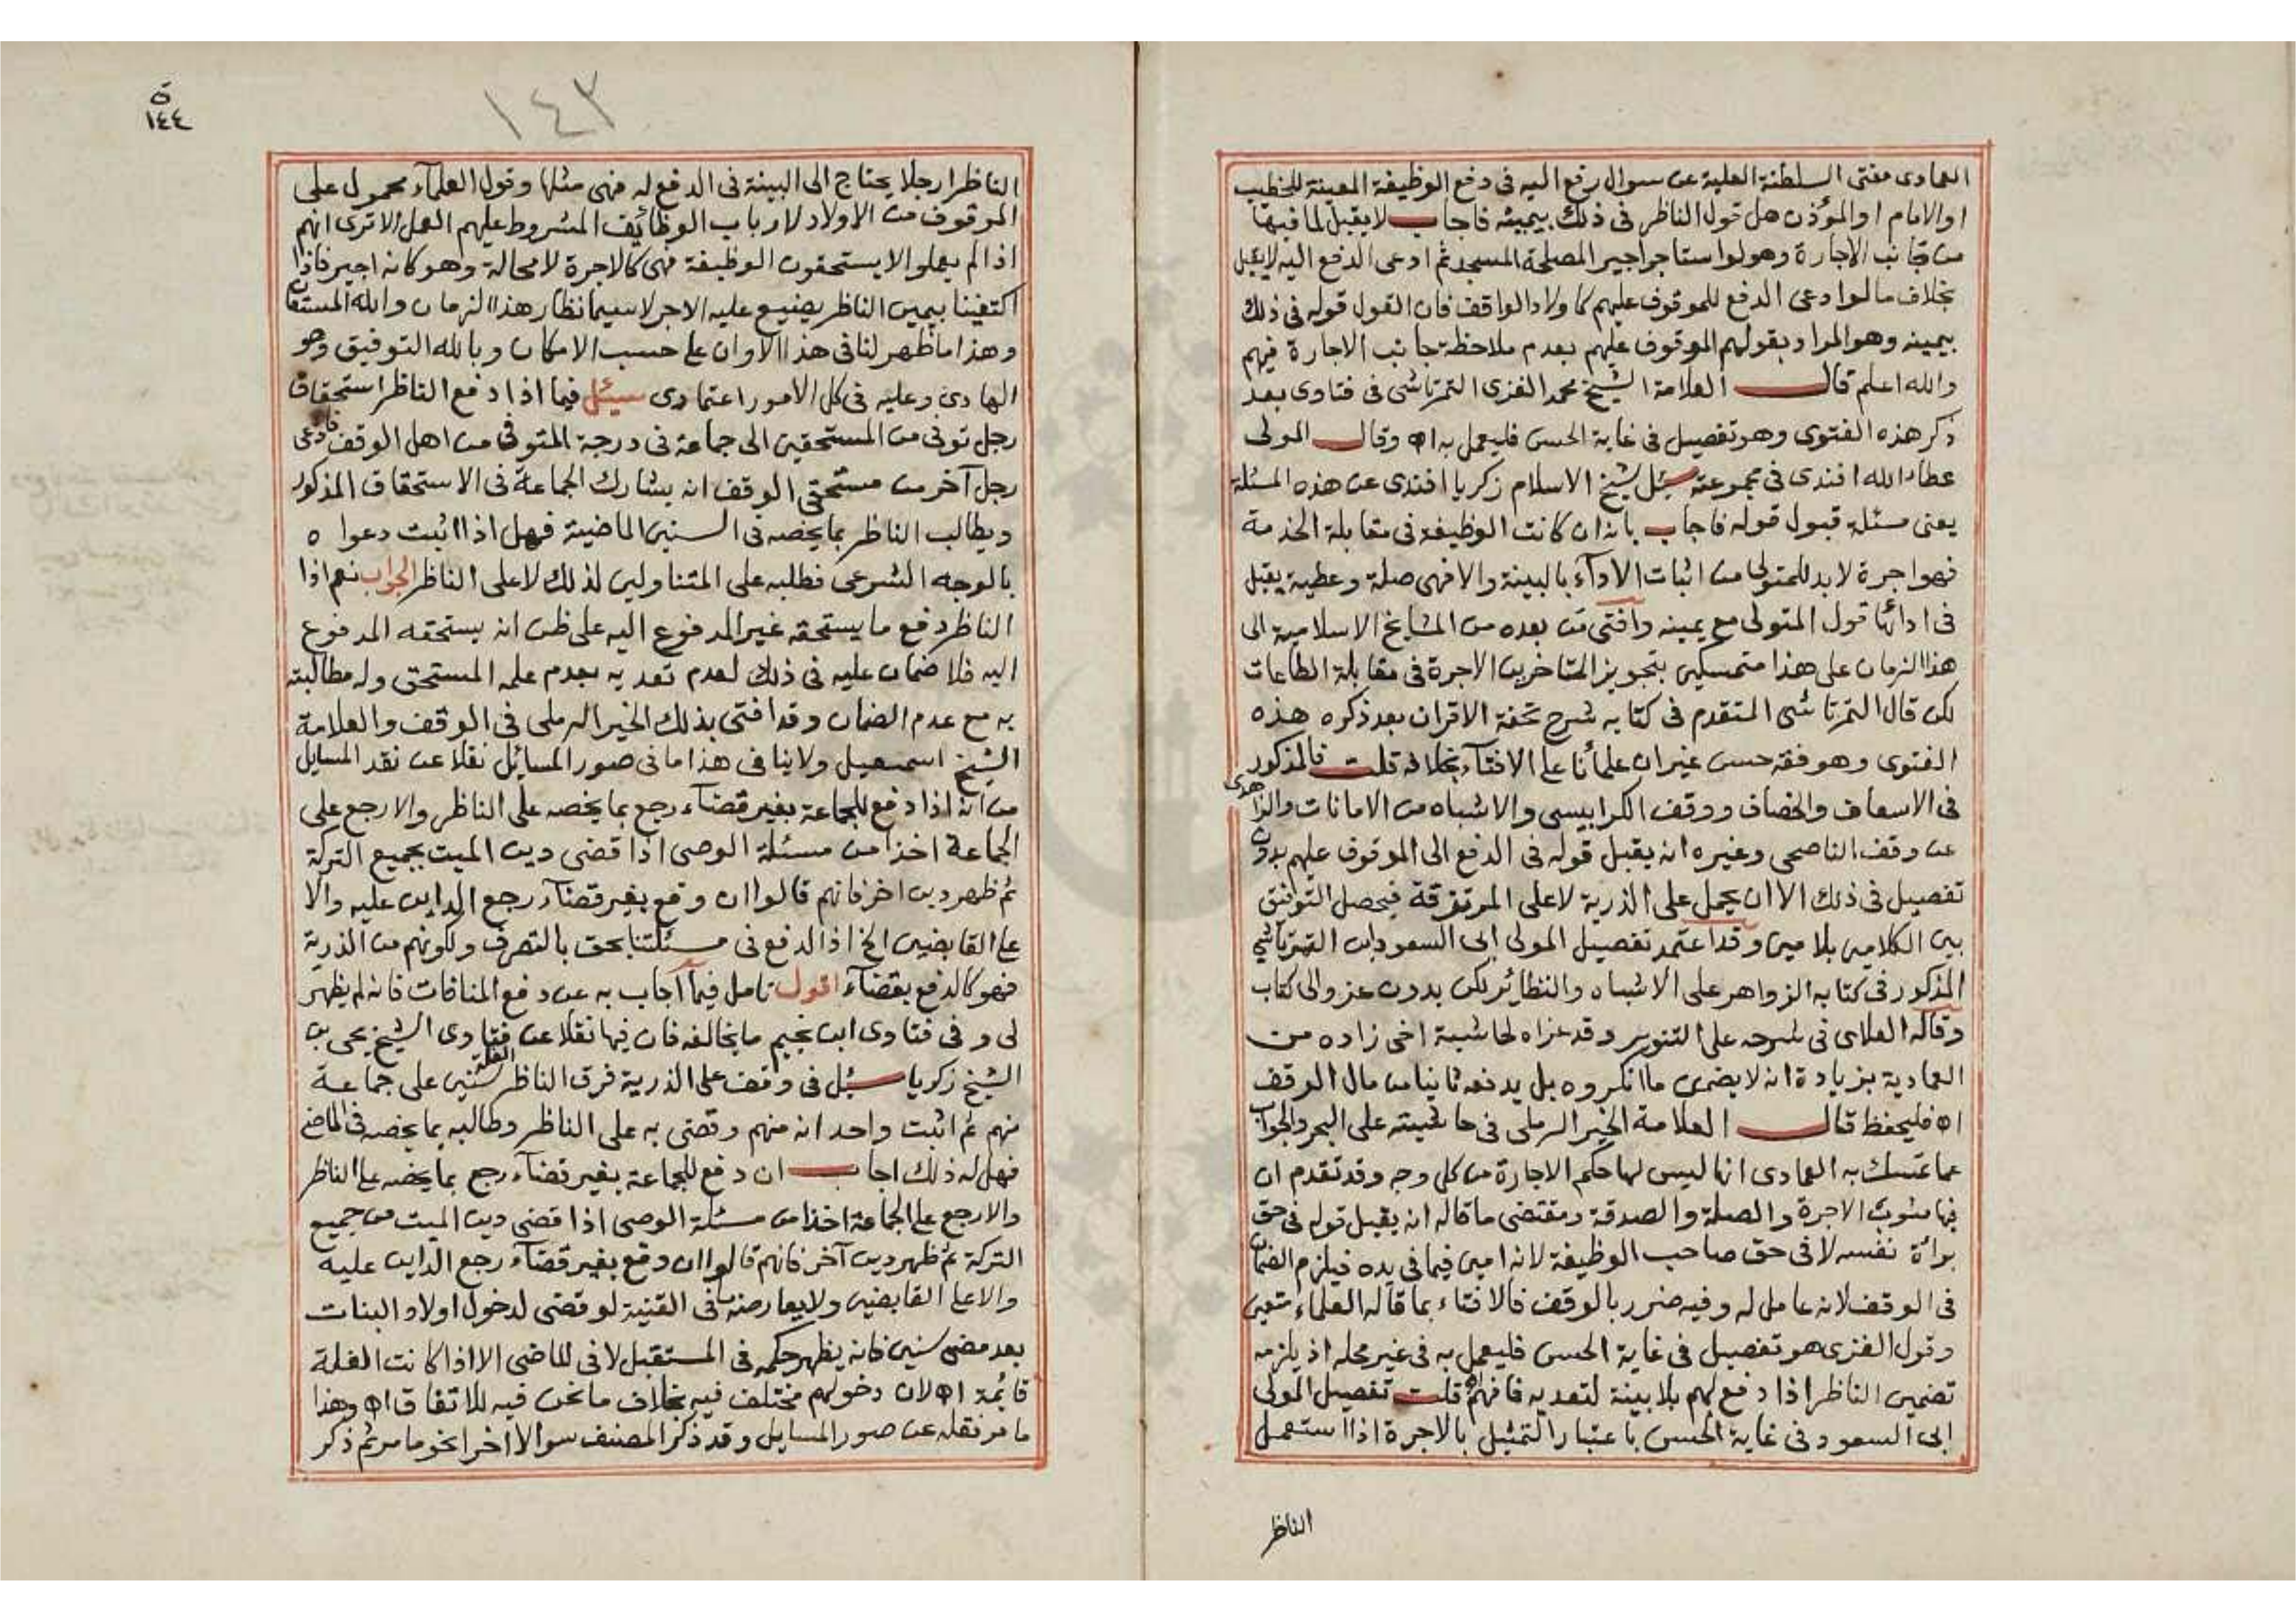 العمادى مفتى السلطنة العلية عن سوال رفع اليه فى دفع الوظيفة المعينة للخطيب
او الامام او المؤذن هل قول الناظر فى ذلك بيمينه فاجاب لا يقبل لما فيها
من جانب الاجارة وهو لو استاجر اجيرا لمصلحة المسجد ثم ادعى الدفع اليه لا يقبل
بخلاف ما لو ادعى الدفع للموقوف عليهم كاولاد الواقف فان القول قوله فى ذلك
بيمينه وهو المراد بقولهم الموقوف عليهم بعدم ملاحظة جانب الاجارة فيهم
والله اعلم قال العلامة الشيخ محمد الغزى التمرتاشى فى فتاوى بعد
ذكر هذه الفتوى وهو تفصيل فى غاية الحسن فليعمل به اه وقال المولى
عطاء الله افندى فى مجموعته سئل شيخ الاسلام زكريا افندى عن هذه المسئلة
يعنى مسئلة قبول قوله فاجاب بانه ان كانت الوظيفة فى مقابلة الخدمة
فهو اجرة لابد للمتولى من اثبات الادآء بالبينة والا فهى صلة وعطية يقبل
فى ادائها قول المتولى مع يمينه وافتى من بعده من المشايخ الاسلامية الى
هذا الزمان على هذا متمسكين بتجويز المتاخرين الاجرة فى مقابلة الطاعات
لكن قال التمرتاشى المتقدم فى كتابه شرح تحفة الاقران بعد ذكره هذه
الفتوى وهو فقه حسن غير ان علمائنا على الافتآء بخلافه قلت فالمذكور
فى الاسعاف والخصاف ووقف الكرابيسى والاشباه من الامانات والزاهدى
عن وقف الناصحى وغيره انه يقبل قوله فى الدفع الى الموقوف عليهم بدون
تفصيل فى ذلك الا ان يحمل على الذرية لا على المرتزقة فيحصل التوفيق
بين الكلامين بلا مين وقد اعتمد تفصيل المولى ابى السعود ابن التمرتاشى
المذكور فى كتابه الزواهر على الاشباه والنظائر لكن بدون عزو الى كتاب
وقاله العلاى فى شرحه على التنوير وقد عزاه لحاشية اخى زاده من
العمادية بزيادة انه لا يضمن ما انكروه بل يدفعه ثانيا من مال الوقف
اه فليحفظ قال العلامة الخير الرملى فى حاشيته على البحر والجواب
عما تمسك به العمادى انها ليس لها حكم الاجارة من كل وجه وقد تقدم ان
فيها شوب الاجرة والصلة والصدقة ومقتضى ما قاله انه يقبل قوله فى حق
براة نفسه لا فى حق صاحب الوظيفة لانه امين فيما فى يده فيلزم الضمان
فى الوقف لانه عامل له وفيه ضرر بالوقف فالافتاء بما قاله العلماء متعين
وقول الغزى هو تفصيل فى غاية الحسن فليعمل به فى غير محله اذ يلزمه
تضمين الناظر اذا دفع لهم بلا بينة لتعديه فافهم اه قلت تفصيل المولى
ابى السعود فى غاية الحسن باعتبار التمثيل بالاجرة اذا استعمل
الناظر
١٤٣
ة
١٤٤
الناظر رجلا يحتاج الى البينة فى الدفع له فهى مثلها وقول العلمآء محمول على
الموقوف من الاولاد لا رباب الوظائف المشروط عليهم العمل الا ترى انهم
اذا لم يعملوا لا يستحقون الوظيفة فهى كالاجرة لا محالة وهو كانه اجير فاذا
اكتفينا بيمين الناظر يضيع عليه الاجر لا سيما نظار هذا الزمان والله المستعان
وهذا ما ظهر لنا فى هذا الاوان على حسب الامكان وبالله التوفيق وهو
الهادى وعليه فى كل الامور اعتمادى سئل فيما اذا دفع الناظر استحقاق
رجل توفى من المستحقين الى جماعة فى درجة المتوفى من اهل الوقف فادعى
رجل آخر من مستحقى الوقف انه يشارك الجماعة فى الاستحقاق المذكور
ويطالب الناظر بما يخصه فى السنين الماضية فهل اذا اثبت دعواه
بالوجه الشرعى فطلبه على المتناولين لذلك لا على الناظر الجواب نعم اذا
الناظر دفع ما يستحقه غير المدفوع اليه على ظن انه يستحقه المدفوع
اليه فلا ضمان عليه فى ذلك لعدم تعديه بعدم علمه المستحق وله مطالبته
به مع عدم الضمان وقد افتى بذلك الخير الرملى فى الوقف والعلامة
الشيخ اسمعيل ولا ينافى هذا ما فى صور المسائل نقلا عن نقد المسايل
من انه اذا دفع للجماعة بغير قضآء رجع بما يخصه على الناظر والا رجع على
الجماعة اخذا من مسئلة الوصى اذا قضى دين الميت بجميع التركة
ثم ظهر دين اخر فانهم قالوا ان وقع بغير قضآء رجع الداين عليه والا
على القابضين الخ اذ الدفع فى مسئلتنا بحق بالتصرف ولكونهم من الذرية
فهو كالدفع بقضآء اقول تامل فيما اجاب به عن دفع المنافات فانه لم يظهر
لى وفى فتاوى ابن نجيم ما يخالفه فان فيها نقلا عن فتاوى الشيخ يحيى بن
الشيخ زكريا سئل فى وقف على الذرية فرق الناظر الغلة سنتين على جماعة
منهم ثم اثبت واحد انه منهم وقضى به على الناظر وطالبه بما يخصه فى الماضى
فهل له ذلك اجاب ان دفع للجماعة بغير قضآء رجع بما يخصه على الناظر
والا رجع على الجماعة اخذا من مسئلة الوصى اذا قضى دين الميت من جميع
التركة ثم ظهر دين آخر فانهم قالوا ان وقع بغير قضآء رجع الداين عليه
والا على القابضين ولا يعارضه ما فى القنية لو قضى لدخول اولاد البنات
بعد مضى سنين فانه يظهر حكمه فى المستقبل لا فى الماضى الا اذا كانت الغلة
قائمة اه لان دخولهم مختلف فيه بخلاف ما نحن فيه للاتفاق اه وهذا
ما مر نقله عن صور المسايل وقد ذكر المصنف سوالا اخر نحو ما مر ثم ذكر